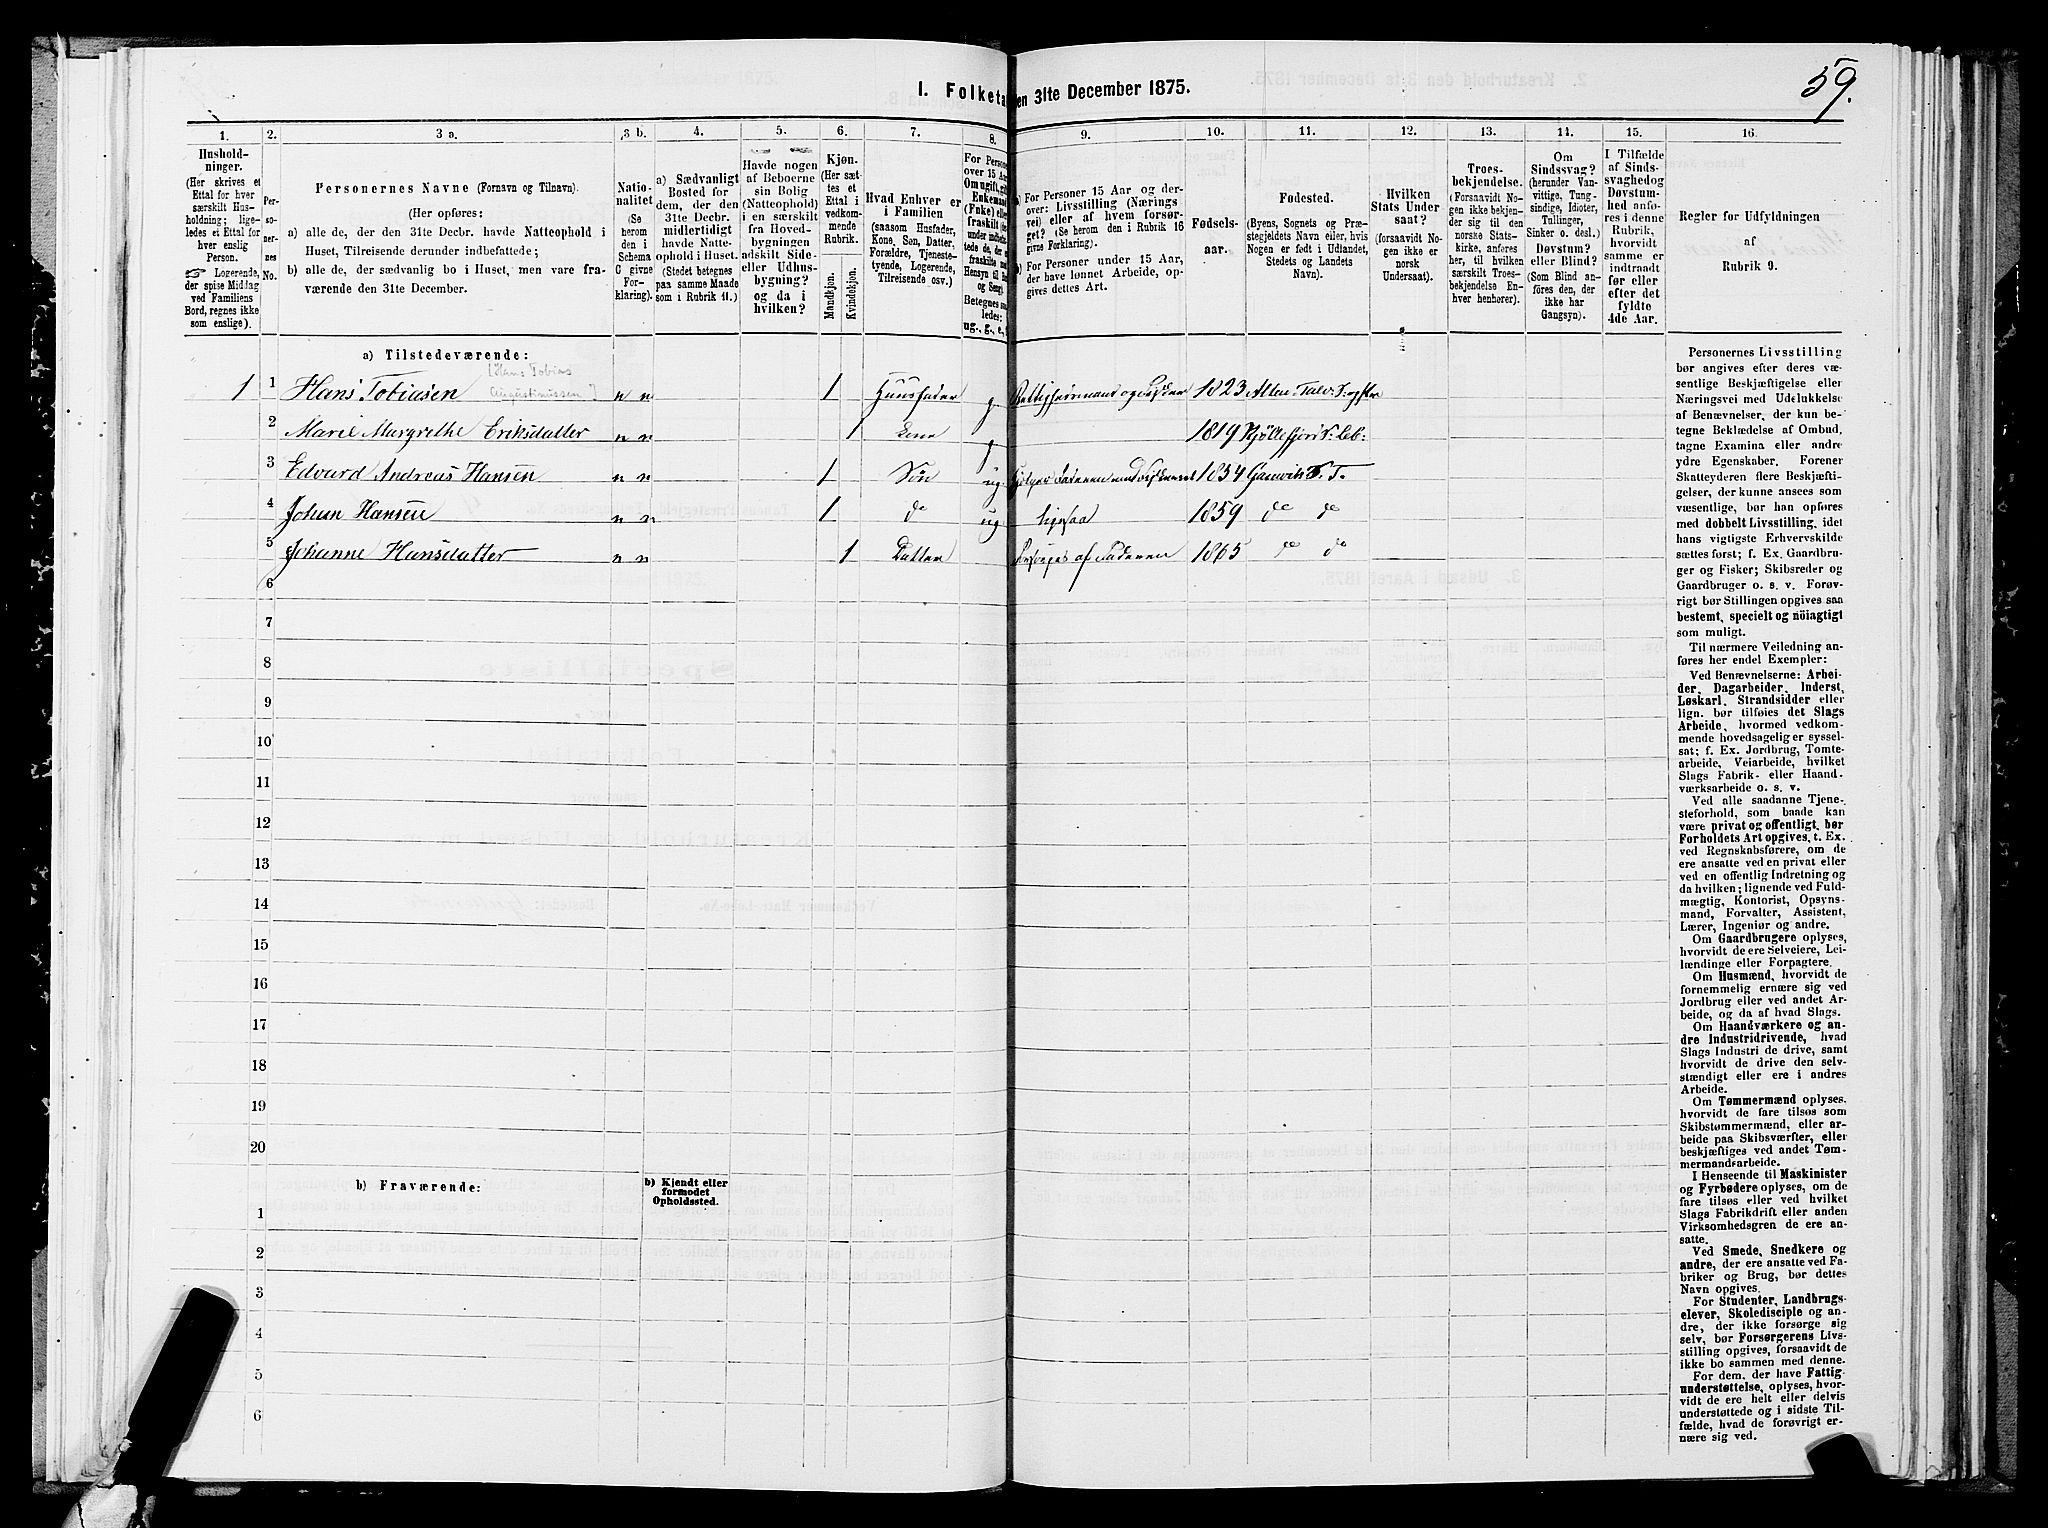 I. Folketa
en 31te December 1875.
59.
1.
2.
3 a.
3 b.
4.
5.
6.
7.
8.
9.
10.
11.
12.
13.
14.
15.
16.
Hushold-
ninger.
(Her skrives et
Ettal for hver
særskilt Hus-
holdning; lige-
ledes et Ettal for
hver enslig
Person.
☞ Logerende,
der spise Middag
ved Familiens
Bord, regnes ikke
som enslige).
Per-
so-
ner-
nes
No.
Personernes Navne (Fornavn og Tilnavn).
(Her opføres:
a) alle de, der den 31te Decbr. havde Natteophold i
Huset, Tilreisende derunder indbefattede;
b) alle de, der sædvanlig bo i Huset, men vare fra-
værende den 31te December.
Natio-
nalitet
(Se
herom
den i
Schema
C givne
For-
klaring).
a) Sædvanligt
Bosted for
dem, der den
31te Decbr.
midlertidigt
havde Natte-
ophold i Huset.
(Stedet betegnes
paa samme Maade
som i Rubrik 11.)
Havde nogen
af Beboerne
sin Bolig
(Natteophold)
i en særskilt
fra Hoved-
bygningen
adskilt Side-
eller Udhus-
bygning?
og da i
hvilken?
Kjøn.
(Her sæt-
tes et
Ettal i
vedkom-
mende
Rubrik.
Mandkjøn.
Kvindekjøn.
Hvad Enhver er
i Familien
(saasom Husfader,
Kone, Søn, Datter,
Forældre, Tjeneste-
tyende, Logerende,
Tilreisende osv.)
For Person
over 15 Aar
Om ugift, gift
Enkemand
(Enke) eller
fraskilt
Hensyn til Bord
og Seng.
Betegnes saa-
ledes:
ug., g., e.,
a) For Personer 15 Aar og der-
over: Livsstilling (Nærings
vei) eller af hvem forsør-
get? (Se herom den i Rubrik 16
givne Forklaring).
b) For Personer under 15 Aar,
der have lønnet Arbeide, op-
gives dettes Art.
Fødsels-
aar.
Fødested.
(Byens, Sognets og Præ-
stegjeldets Navn eller, hvis
Nogen er født i Udlandet,
Stedets og Landets
Navn).
Hvilken
Stats Under
saat?
(forsaavidt No-
gen ikke er
norsk
Undersaat).
Troes-
bekjendelse.
(Forsaavidt No-
gen ikke bekjen-
der sig til den
norske Stats-
kirke, anføres
her, til hvilken
særskilt Troes-
bekjendelse En-
hver henhører).
Om
Sindssvag?
(herunder Van-
vittige, Tung-
sindige, Idioter,
Tullinger,
Sinker o. desl.)
Døvstum?
eller Blind?
(Som Blind an-
føres den, der
ikke har
Gangsyn).
I Tilfælde
af Sinds-
svaghedog
Døvstum-
hed anfø-
res i denne
Rubrik,
hvorvidt
samme er
indtraadt
før eller
efter det
fyldte
4de Aar.
Regler for Udfyldningen
af
Rubrik 9.
a) Tilstedeværende:
1 1 Hans Tobiasen [Hans Tobias Augustinussen] n n 1 Huusfader g 1823
2 Marie Margrethe Eriksdatter n n 1 Kone g 1819
3 Edvard Andreas Hansen n n 1 Søn ug. 1854 Gamvik
4 Johan Hansen n n 1 do ug ligesaa 1859 do do
5 Johanne Hansdatter n n 1 Datter Forsørges af Faderen 1865 do do
6
7
8
9
10
11
12
13
14
15
16
17
18
19
20
b) Fraværende:
b) Kjendt eller
formodet
Opholdssted.
1
2
3
4
5
6
Personernes Livsstilling
bør angives efter deres væ-
sentlige Beskjæftigelse eller
Næringsvei med Udelukkelse
af Benævnelser, der kun be-
tegne Beklædelse af Ombud,
tagne Examina eller andre
ydre Egenskaber. Forener
Skatteyderen flere Beskjæfti-
gelser, der kunne ansees som
væsentlige, bør han opføres
med dobbelt Livsstilling, idet
hans vigtigste Erhvervskilde
sættes først; f. Ex. Gaardbru-
ger og Fisker; Skibsreder og
Gaardbruger o. s. v. Forøv-
rigt bør Stillingen opgives saa
bestemt, specielt og nöiagtigt
som muligt.
Til nærmere Veiledning an-
føres her endel Exempler:
Ved Benævnelserne: Arbei-
der, Dagarbeider, Inderst,
Løskarl, Strandsidder eller
lign. bør tilføies det Slags
Arbeide, hvormed vedkom-
mende hovedsagelig er syssel-
sat; f. Ex. Jordbrug, Tomte-
arbeide, Veiarbeide, hvilket
Slags Fabrik- eller Haand-
værksarbeide o. s. v.
Ved alle saadanne Tjene-
steforhold, som baade kan
være privat og offentligt, bør
Forholdets Art opgives, t. Ex.
ved Regnskabsførere, om de
ere ansatte ved en privat eller
ved en offentlig Indretning og
da hvilken; lignende ved Fuld-
mægtig, Kontorist, Opsyns-
mand, Forvalter, Assistent,
Lærer, Ingeniør og andre.
Om Gaardbrugere oplyses,
hvorvidt de ere Selveiere, Lei-
lændinge eller Forpagtere.
Om Husmænd, hvorvidt de
fornemmelig ernære sig ved
Jordbrug eller ved andet Ar-
beide, og da af hvad Slags.
Om Haandværkere og an-
dre Industridrivende, hvad
Slags Industri de drive, samt
hvorvidt de drive den selv-
stændigt eller ere i andres
Arbeide.
Om Tømmermænd oplyses,
hvorvidt de fare tilsøs som
Skibstømmermænd, eller ar-
beide paa Skibsværfter, eller
beskjæftiges ved andet Tøm-
mermandsarbeide.
I Henseende til Maskinister
og Fyrbødere oplyses, om de
fare tilsøs eller ved hvilket
Slags Fabrikdrift eller anden
Virksomhedsgren de ere an-
satte.
Ved Smede, Snedkere og
andre, der ere ansatte ved Fa-
briker og Brug, bør dettes
Navn opgives.
For Studenter, Landbrugs-
elever, Skoledisciple og an-
dre, der ikke forsørge sig
selv, bør Forsørgerens Livs-
stilling opgives, forsaavidt de
ikke bo sammen med denne.
For dem, der have Fattig-
understøttelse, oplyses, hvor-
vidt de ere helt eller delvis
understøttede og i sidste Til-
fælde, hvad de forøvrigt er-
nære sig ved.